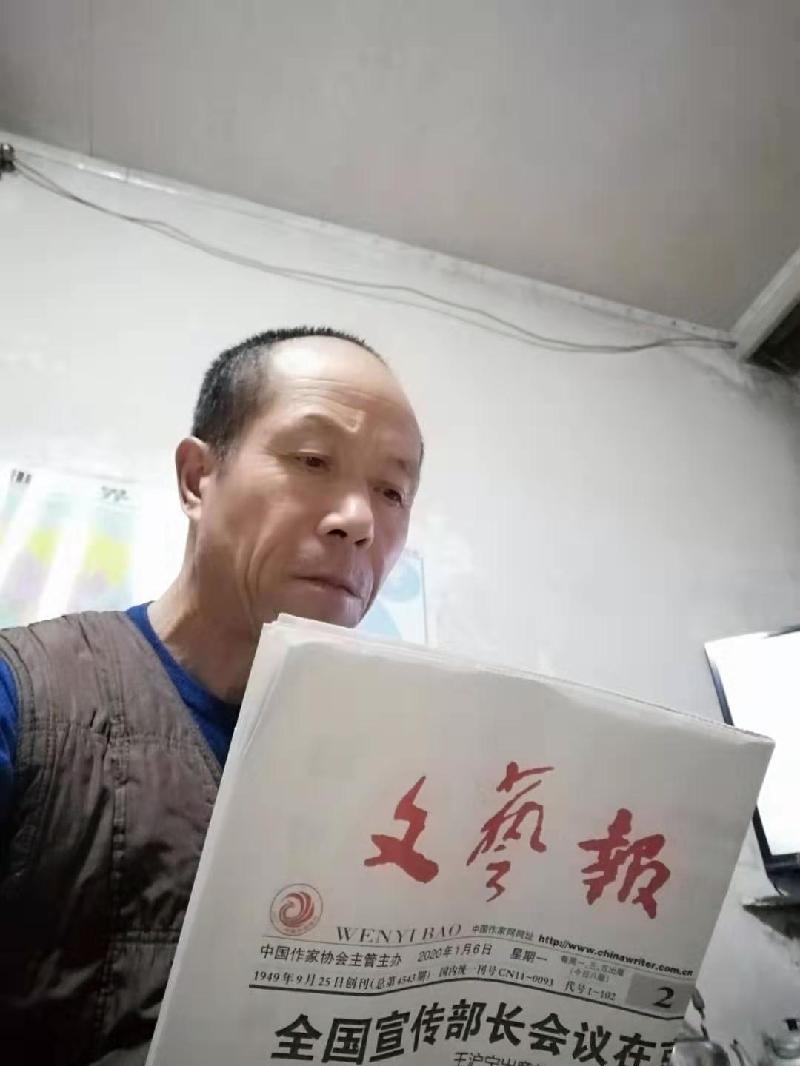 文藝報
WENYI BAO 中国作家网网址 http://www.chinawriter.com.cn
中国作家协会主管主办 2020年1月6日 星期一 每周一、三、五出版
(今日八版)
1949年9月25日创刊(总第4543期) 国内统一刊号CN11-0093 代号1-102 2
全国宣传部长会议在
王沪宁出席